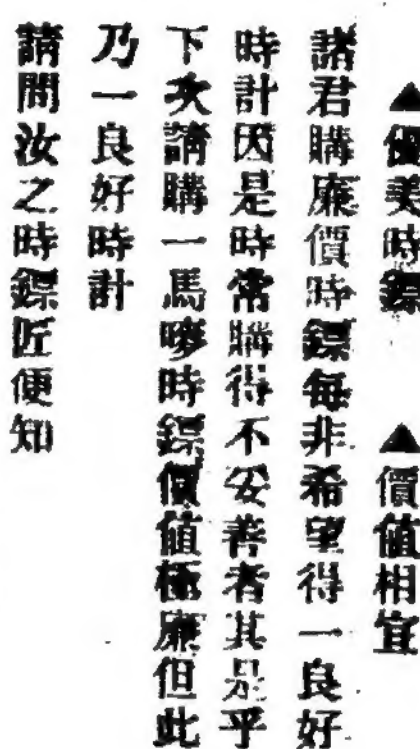 ▲優美時鏢 ▲價值相宜
諸君購廉價時鏢每非希望得一良好
時計因是時常購得不妥善者其是乎
下次請購一馬嘜時鏢價值極廉但此
乃一良好時計
請問汝之時鏢匠便知